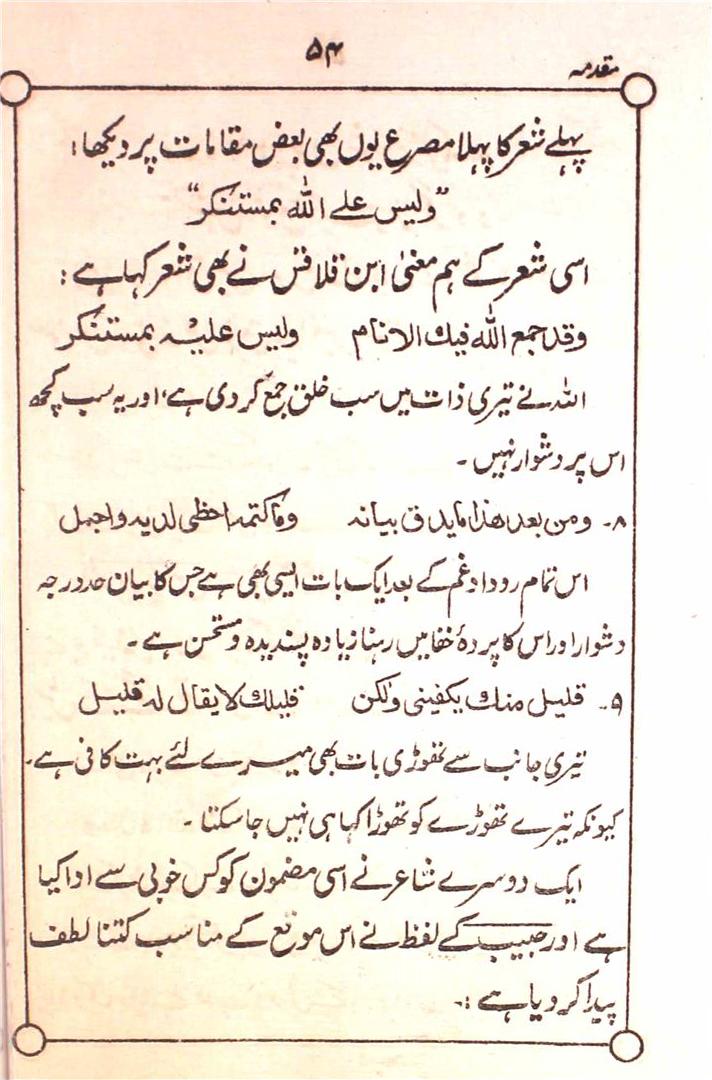 ۵۴
مقدمہ
پہلے شعر کا پہلا مصرع یوں بھی بعض مقامات پر دیکھا:
"ولیس علے اللہ بمستنکر"
اسی شعر کے ہم معنیٰ ابن قلاقس نے بھی شعر کہا ہے:
وقد جمع اللہ فیك الانام ولیس علیہ بمستنکر
اللہ نے تیری ذات میں سب خلق جمع کر دی ہے، اور یہ سب کچھ
اس پر دشوار نہیں۔
۸۔ ومن بعد ھذا مایدق بیانہ وماکتمہ احظی لدیہ واجمل
اس تمام رودادِ غم کے بعد ایک بات ایسی بھی ہے جس کا بیان حد درجہ
دشوار اور اس کا پردۂ خفا میں رہنا زیادہ پسندیدہ و مستحسن ہے۔
۹۔ قلیل منك یکفینی ولکن قلیلك لا یقال لہ قلیل
تیری جانب سے تھوڑی بات بھی میرے لئے بہت کافی ہے۔
کیونکہ تیرے تھوڑے کو تھوڑا کہا ہی نہیں جا سکتا۔
ایک دوسرے شاعر نے اسی مضمون کو کس خوبی سے ادا کیا
ہے اور حبیب کے لفظ نے اس موقع کے مناسب کتنا لطف
پیدا کر دیا ہے:۔